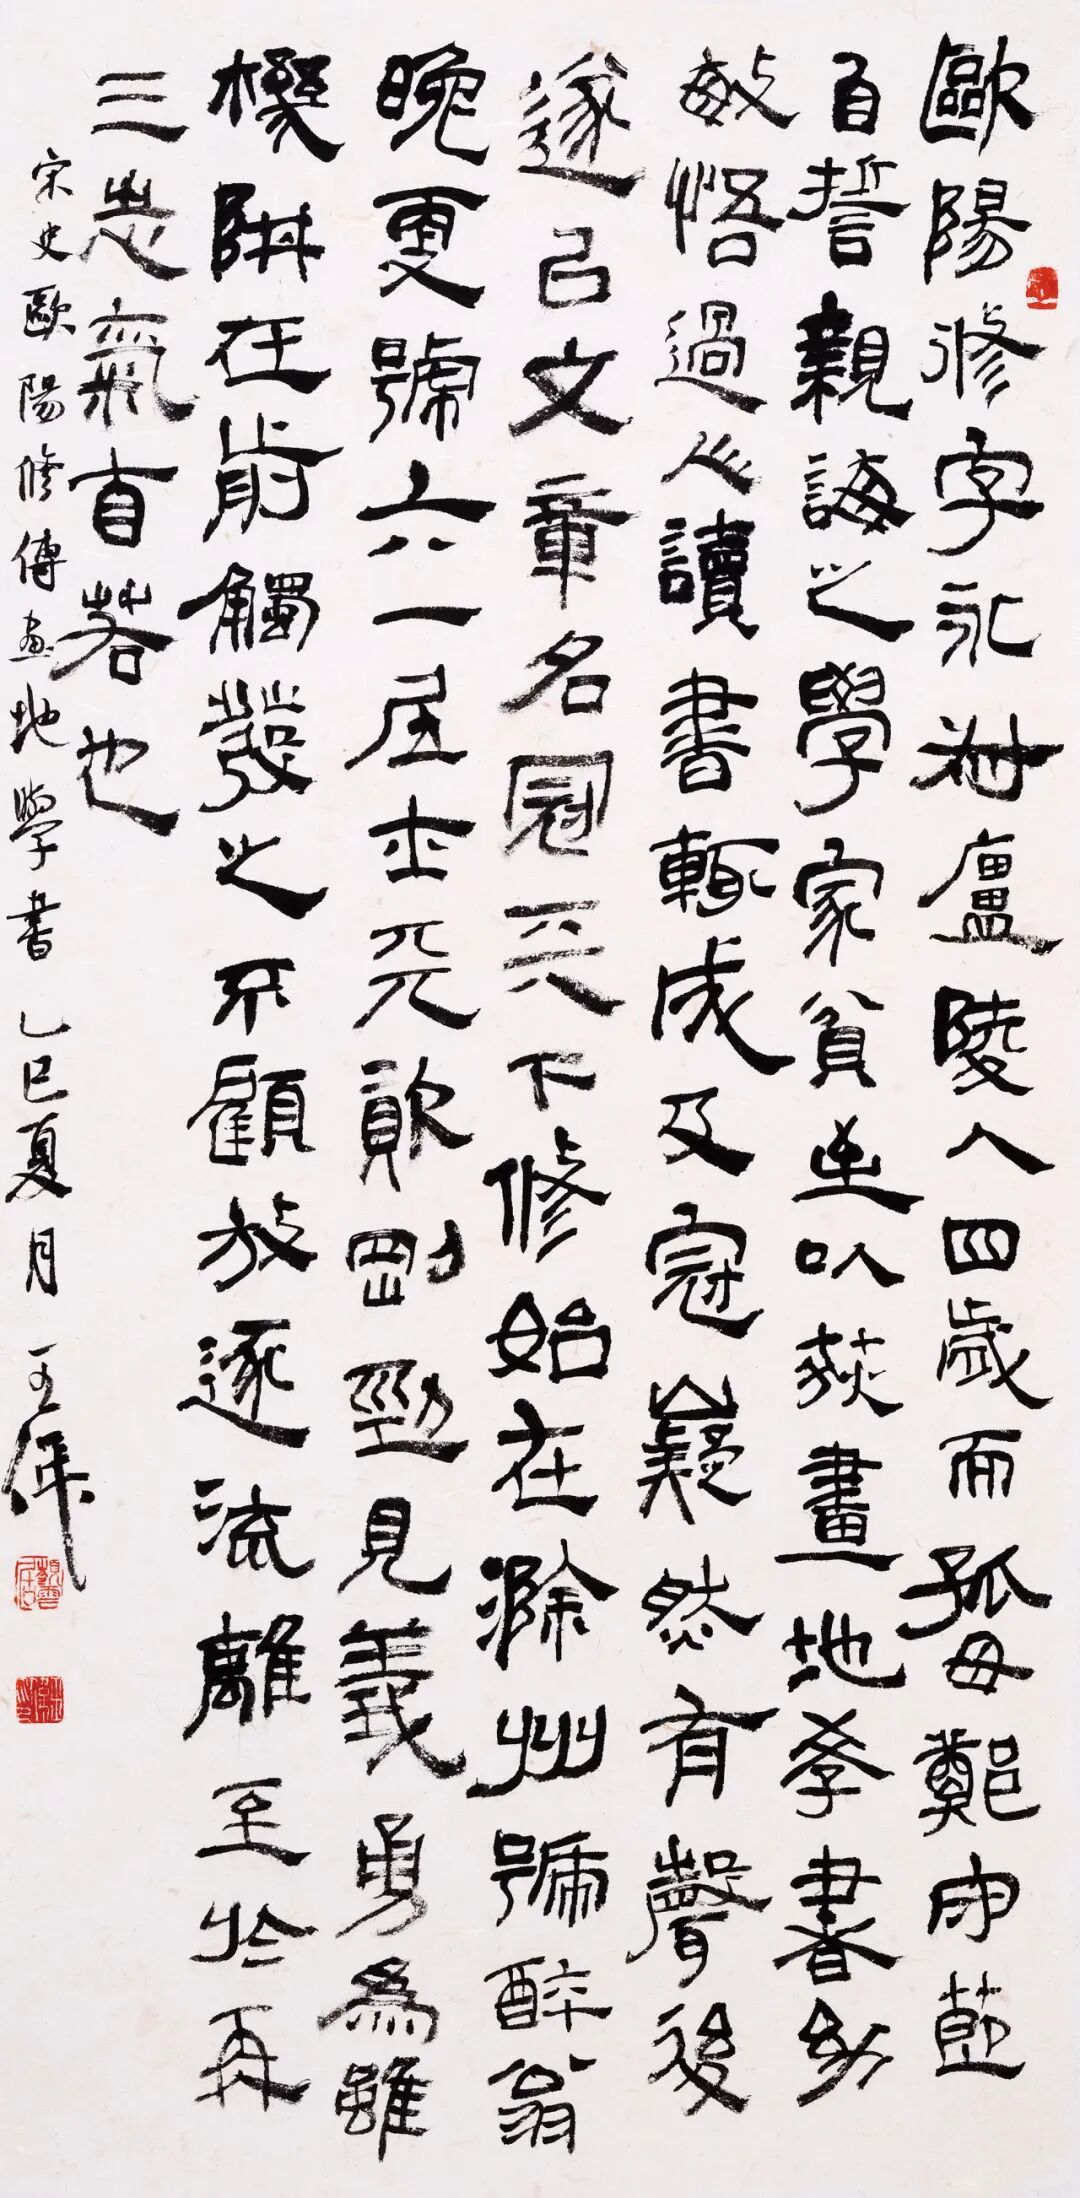 歐陽修字永叔廬陵人四歲而孤母鄭守節
自誓親誨之學家貧至以荻畫地學書幼
敏悟過人讀書輒成及冠嶷然有聲後
遂以文章名冠天下修始在滁州號醉翁
晚更號六一居士天資剛勁見義勇為雖
機阱在前觸發之不顧放逐流離至於再
三志氣自若也
宋史歐陽修傳畫地學書 乙巳夏月 王